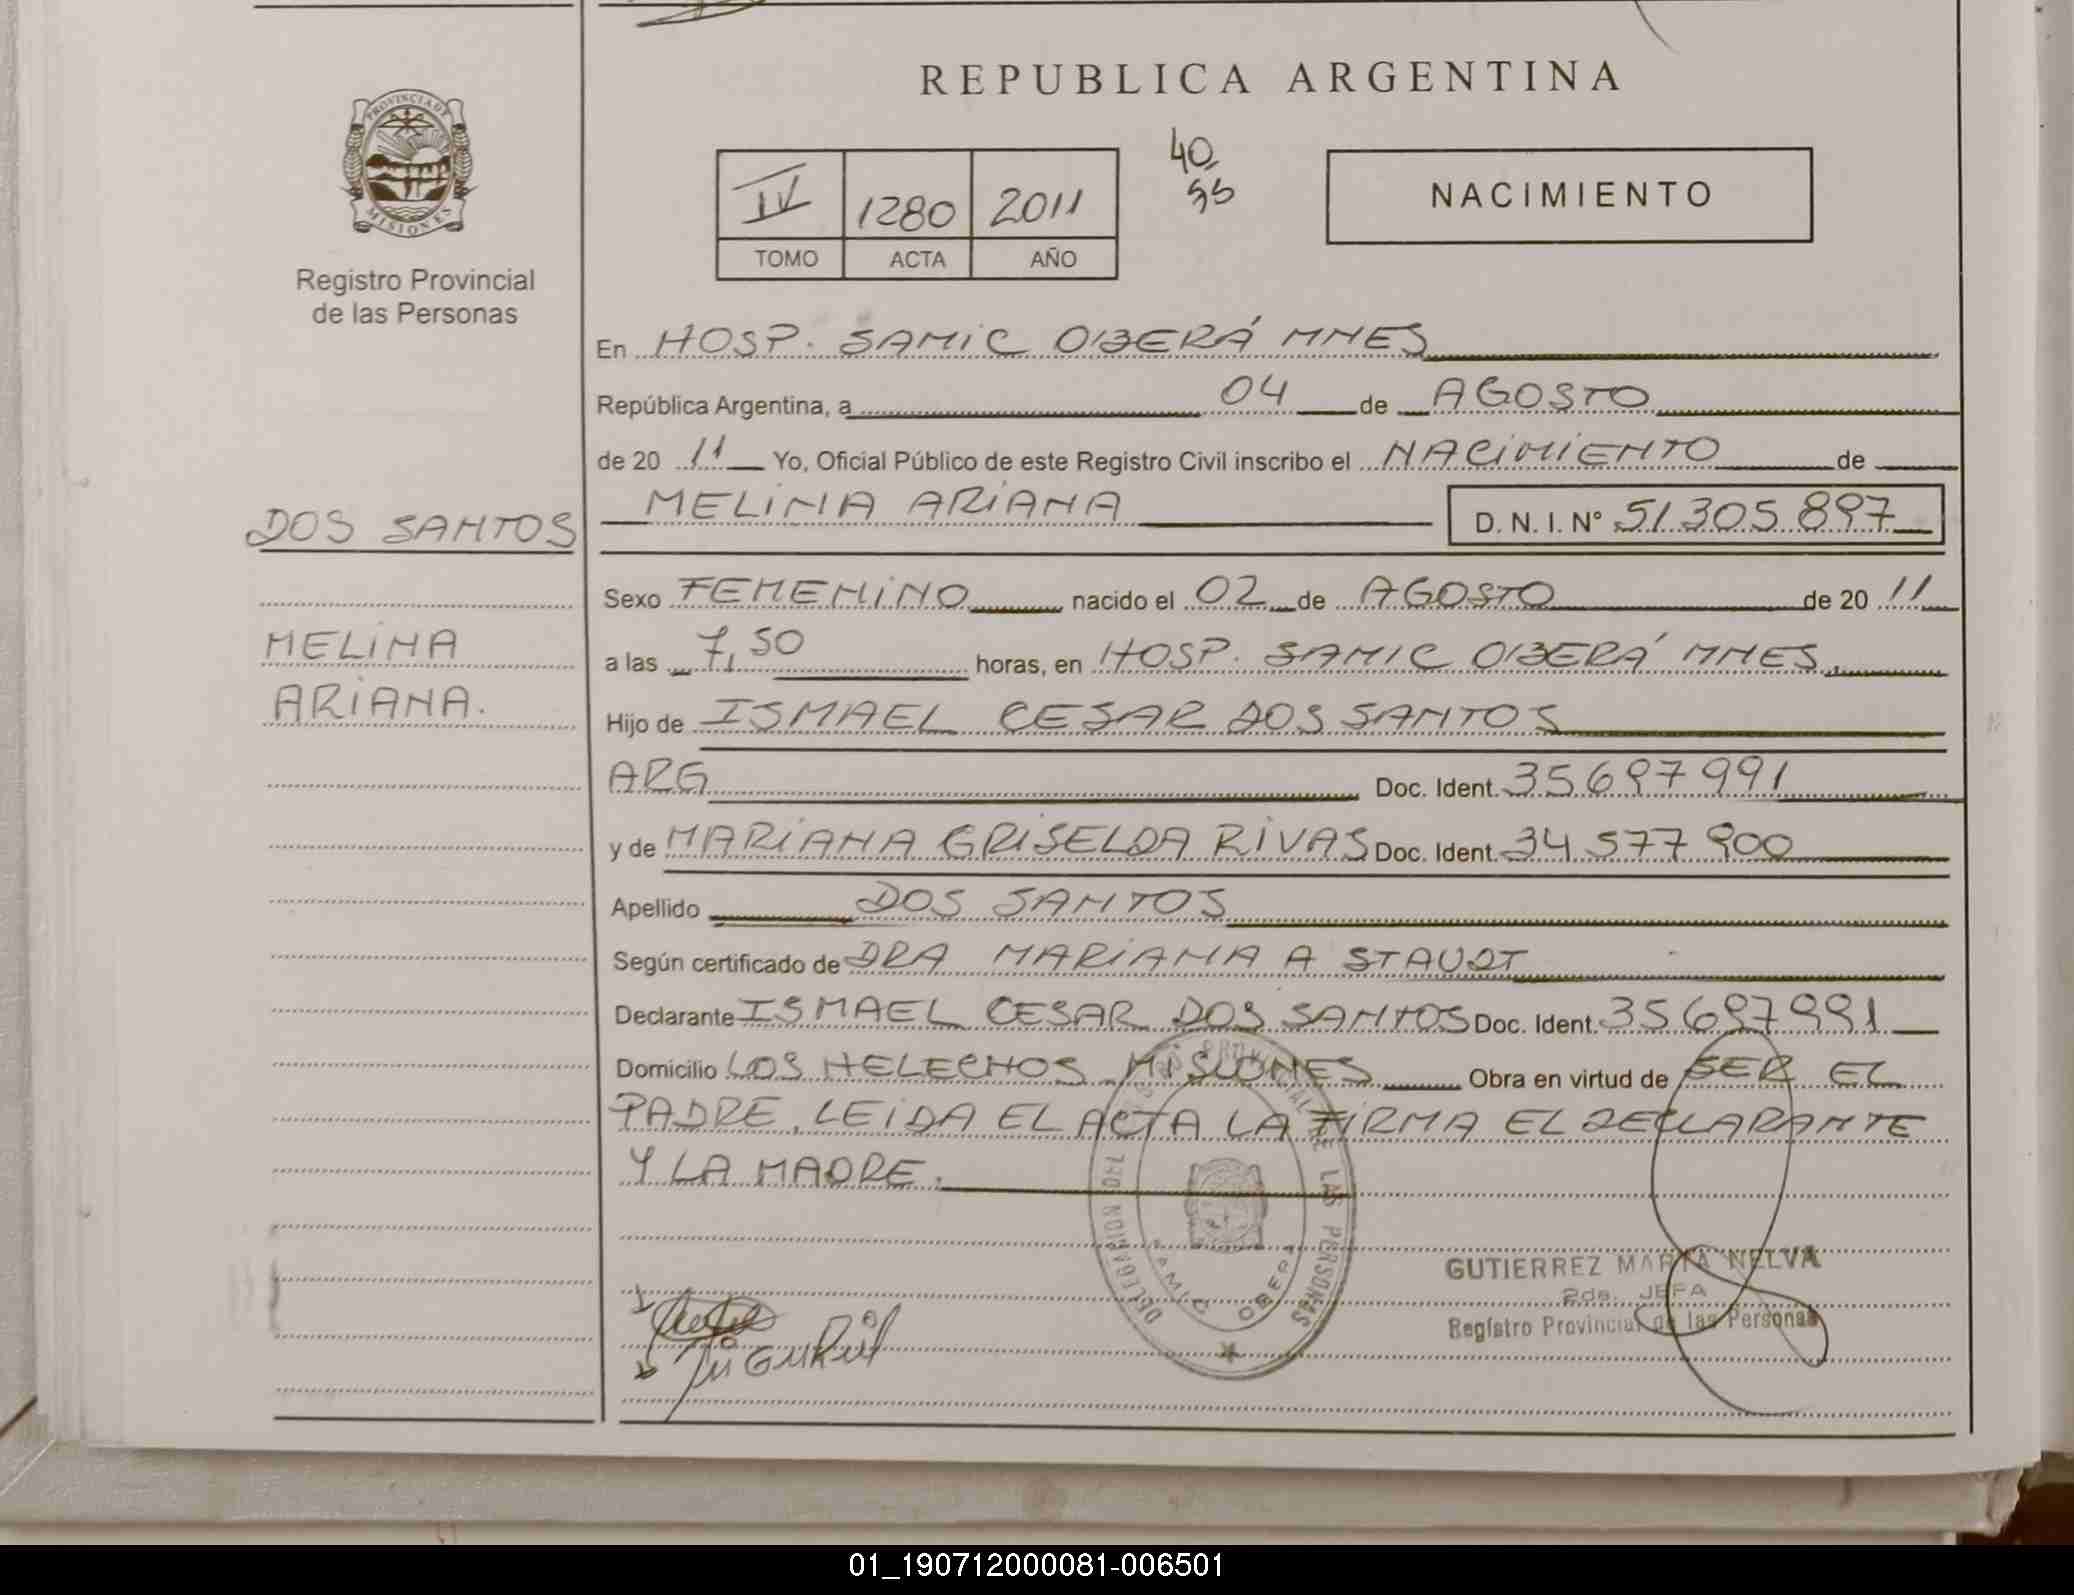 REPUBLICA ARGENTINA
PROVINCIA DE
MISIONES
Registro Provincial
de las Personas
IV 1280 2011
TOMO ACTA AÑO
40
NACIMIENTO
En HOSP. SAMIC OBERÁ MNES
República Argentina, a 04 de AGOSTO
de 20 11 Yo, Oficial Público de este Registro Civil inscribo el NACIMIENTO de
DOS SANTOS
MELINA
ARIANA.
MELINA ARIANA D. N. I. Nº 51305897
Sexo FEMENINO nacido el 02 de AGOSTO de 20 11
a las 7,50 horas, en HOSP. SAMIC OBERÁ MNES.
Hijo de ISMAEL CESAR DOS SANTOS
ARG Doc. Ident. 35697991
y de MARIANA GRISELDA RIVAS Doc. Ident. 34577900
Apellido DOS SANTOS
Según certificado de DRA MARIANA A STAUDT
Declarante ISMAEL CESAR DOS SANTOS Doc. Ident. 35697991
Domicilio LOS HELECHOS MISIONES Obra en virtud de SER EL
PADRE. LEIDA EL ACTA LA FIRMA EL DECLARANTE
Y LA MADRE.
DELEGACION DEL REGISTRO PROVINCIAL DE LAS PERSONAS
SAMIC OBERA
GUTIERREZ MARTA NELVA
2da. JEFA
Registro Provincial de las Personas
01_190712000081-006501